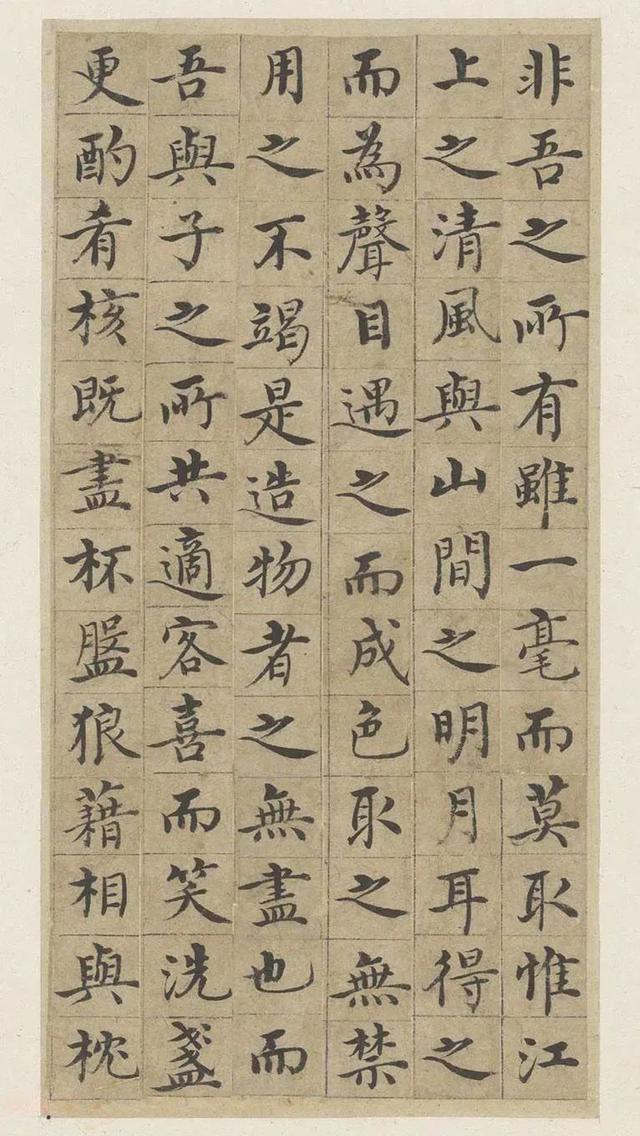 非吾之所有雖一毫而莫取惟江
上之清風與山間之明月耳得之
而為聲目遇之而成色取之無禁
用之不竭是造物者之無盡也而
吾與子之所共適客喜而笑洗盞
更酌肴核既盡杯盤狼藉相與枕